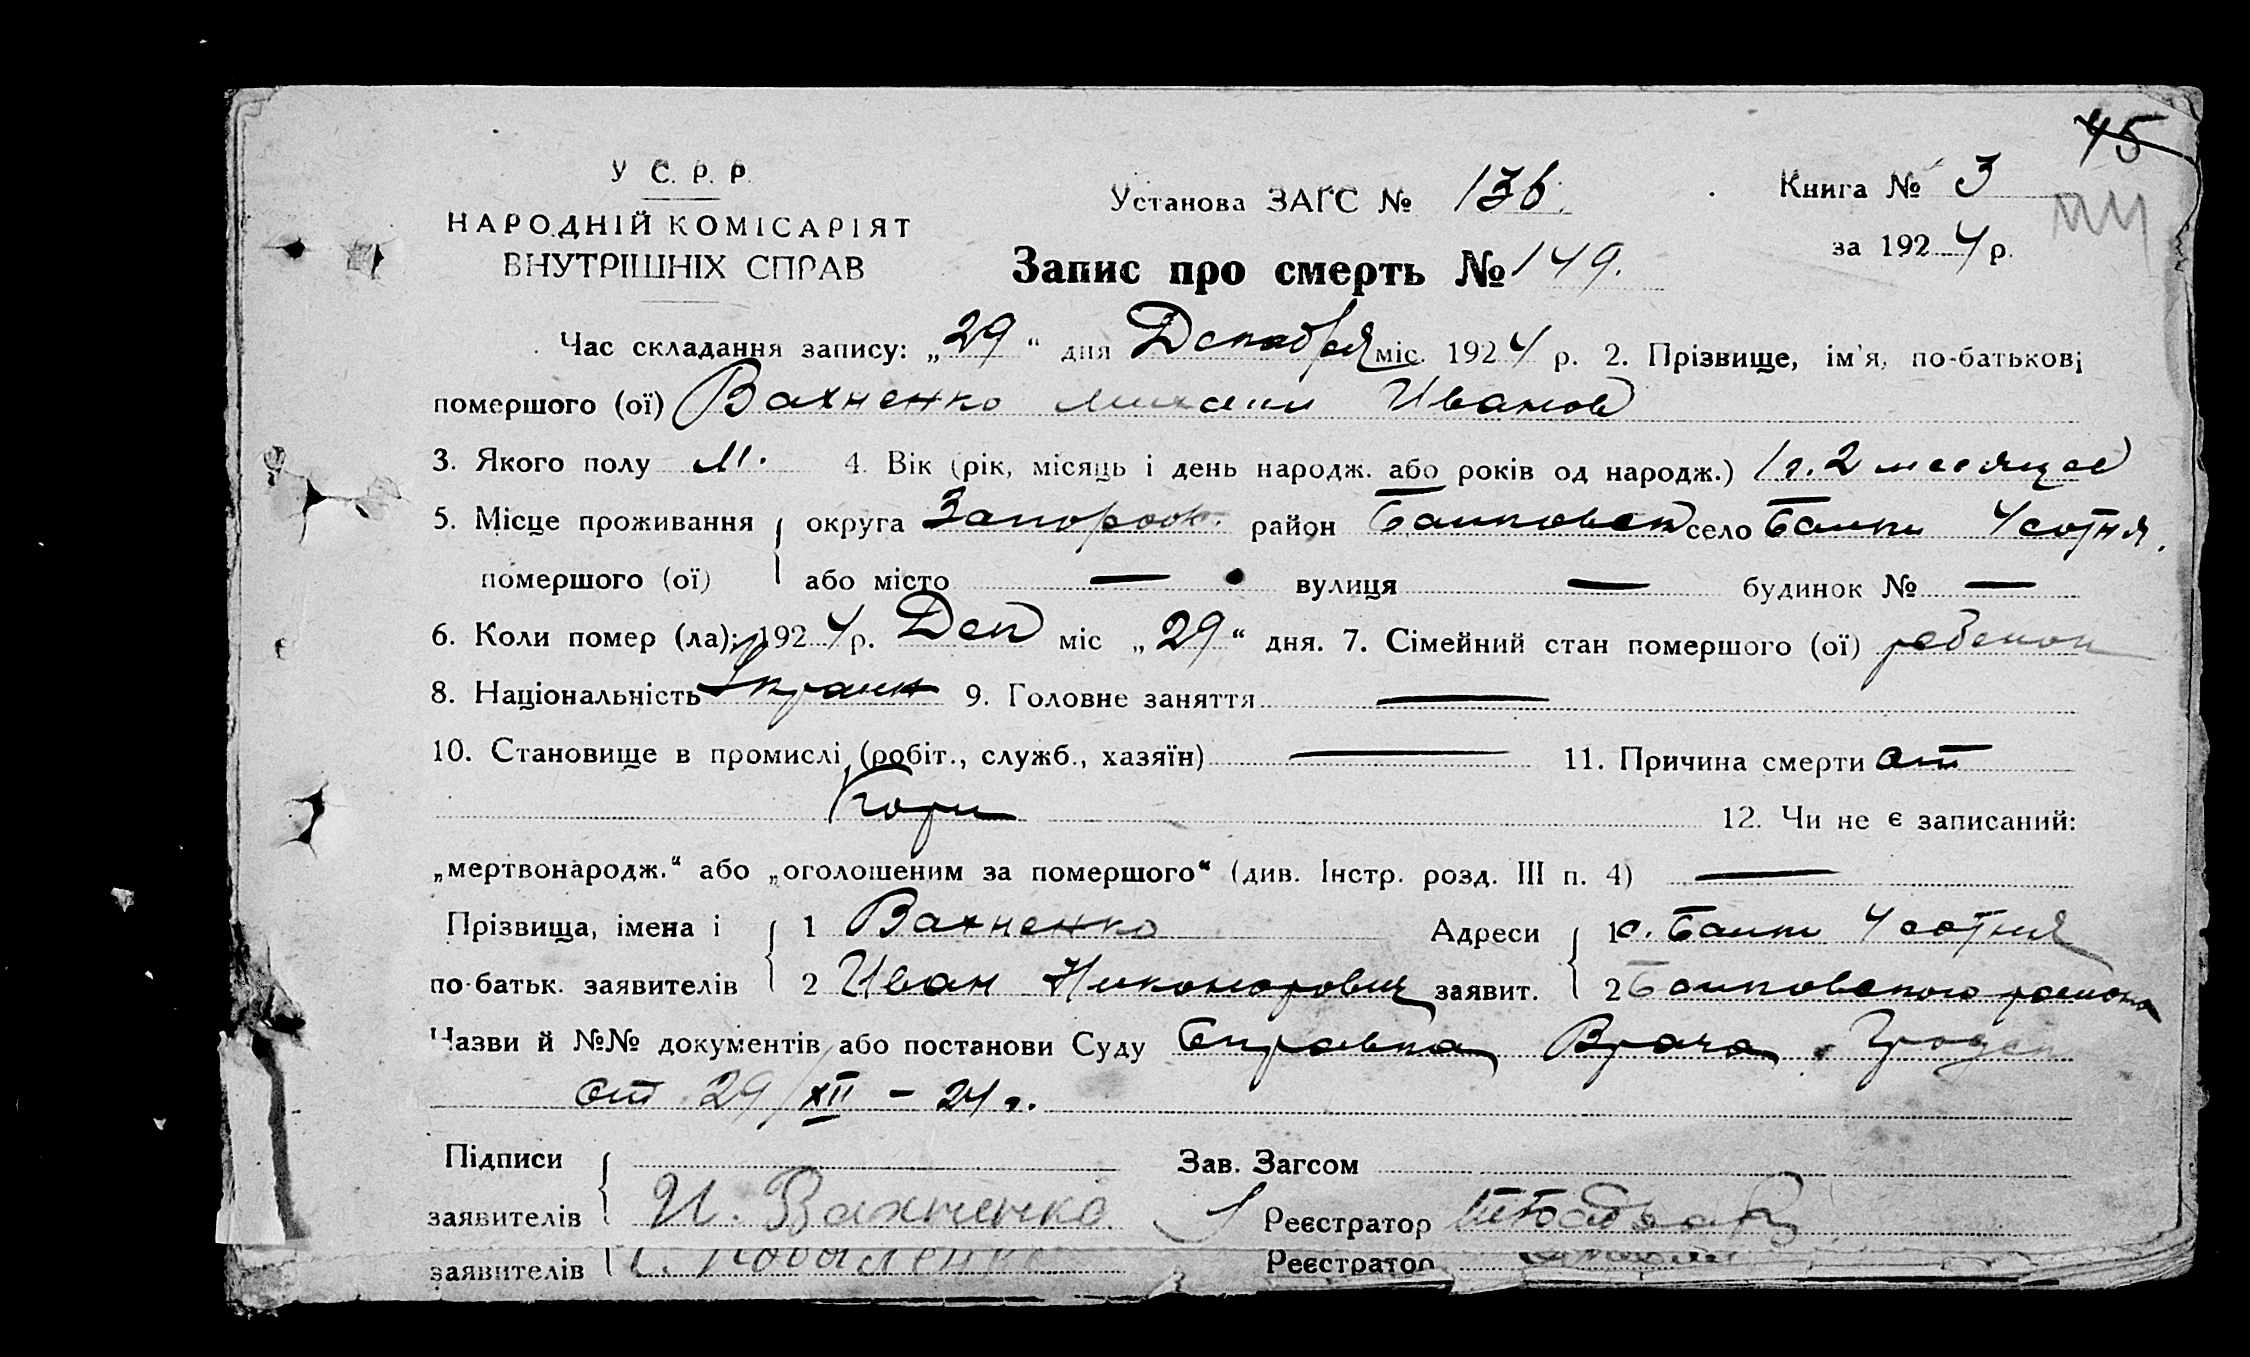 45
У С. Р. Р.
НАРОДНІЙ КОМІСАРІЯТ
ВНУТРІШНІХ СПРАВ
Установа ЗАГС № 136.
Книга № 3
за 1924 р.
Запис про смерть № 149.
Час складання запису: „29“ дня Декабря міс. 1924 р. 2. Прізвище, ім'я, по-батькові
помершого (ої) Вахненко Михаил Иванов
3. Якого полу М. 4. Вік (рік, місяць і день народж. або років од народж.) 1 г. 2 месяцев
5. Місце проживання округа Запорож. район Балковск село Балки 4 сотня.
помершого (ої) або місто — вулиця — будинок № —
6. Коли помер (ла): 1924 р. Дек міс „29“ дня. 7. Сімейний стан помершого (ої) ребенок
8. Національність Украин 9. Головне заняття —
10. Становище в промислі (робіт., служб., хазяїн) — 11. Причина смерти от
Кори 12. Чи не є записаний:
„мертвонародж.“ або „оголошеним за помершого“ (див. Інстр. розд. III п. 4) —
Прізвища, імена і 1 Вахненко Адреси 1 с. Балки 4 сотня
по-батьк. заявителів 2 Иван Никонорович заявит. 2 Балковского района
Назви й №№ документів або постанови Суду Справка Врача
от 29/XII – 24 г.
Підписи Зав. Загсом
заявителів И. Вахненко Реєстратор
заявителів Коваленко Реєстратор